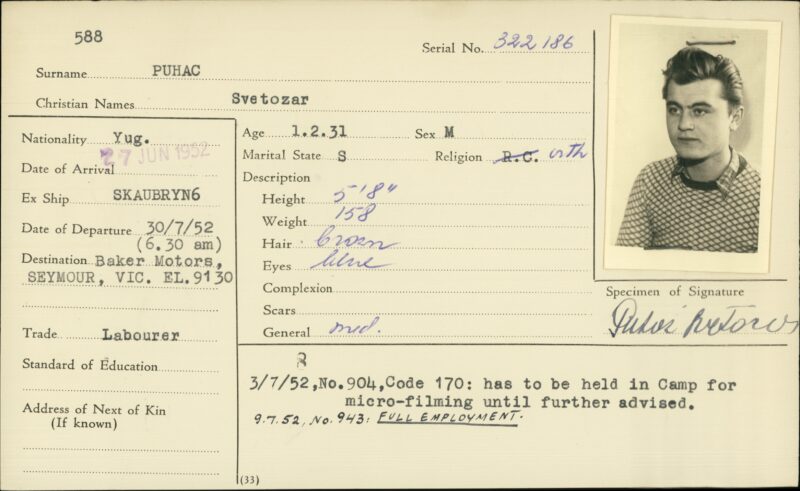 588
Serial No. 322 186
Surname PUHAC
Christian Names Svetozar
Nationality Yug.
27 JUN 1952
Date of Arrival
Ex Ship SKAUBRYN6
Date of Departure 30/7/52
(6.30 am)
Destination Baker Motors,
SEYMOUR, VIC. EL.9130
Trade Labourer
Standard of Education
Address of Next of Kin
(If known)
Age 1.2.31 Sex M
Marital State S Religion R.C. orth
Description
Height 5'8"
Weight 158
Hair brown
Eyes blue
Complexion
Scars
General med.
Specimen of Signature
8
3/7/52, No.904, Code 170: has to be held in Camp for
micro-filming until further advised.
9.7.52, No. 943: FULL EMPLOYMENT.
(33)